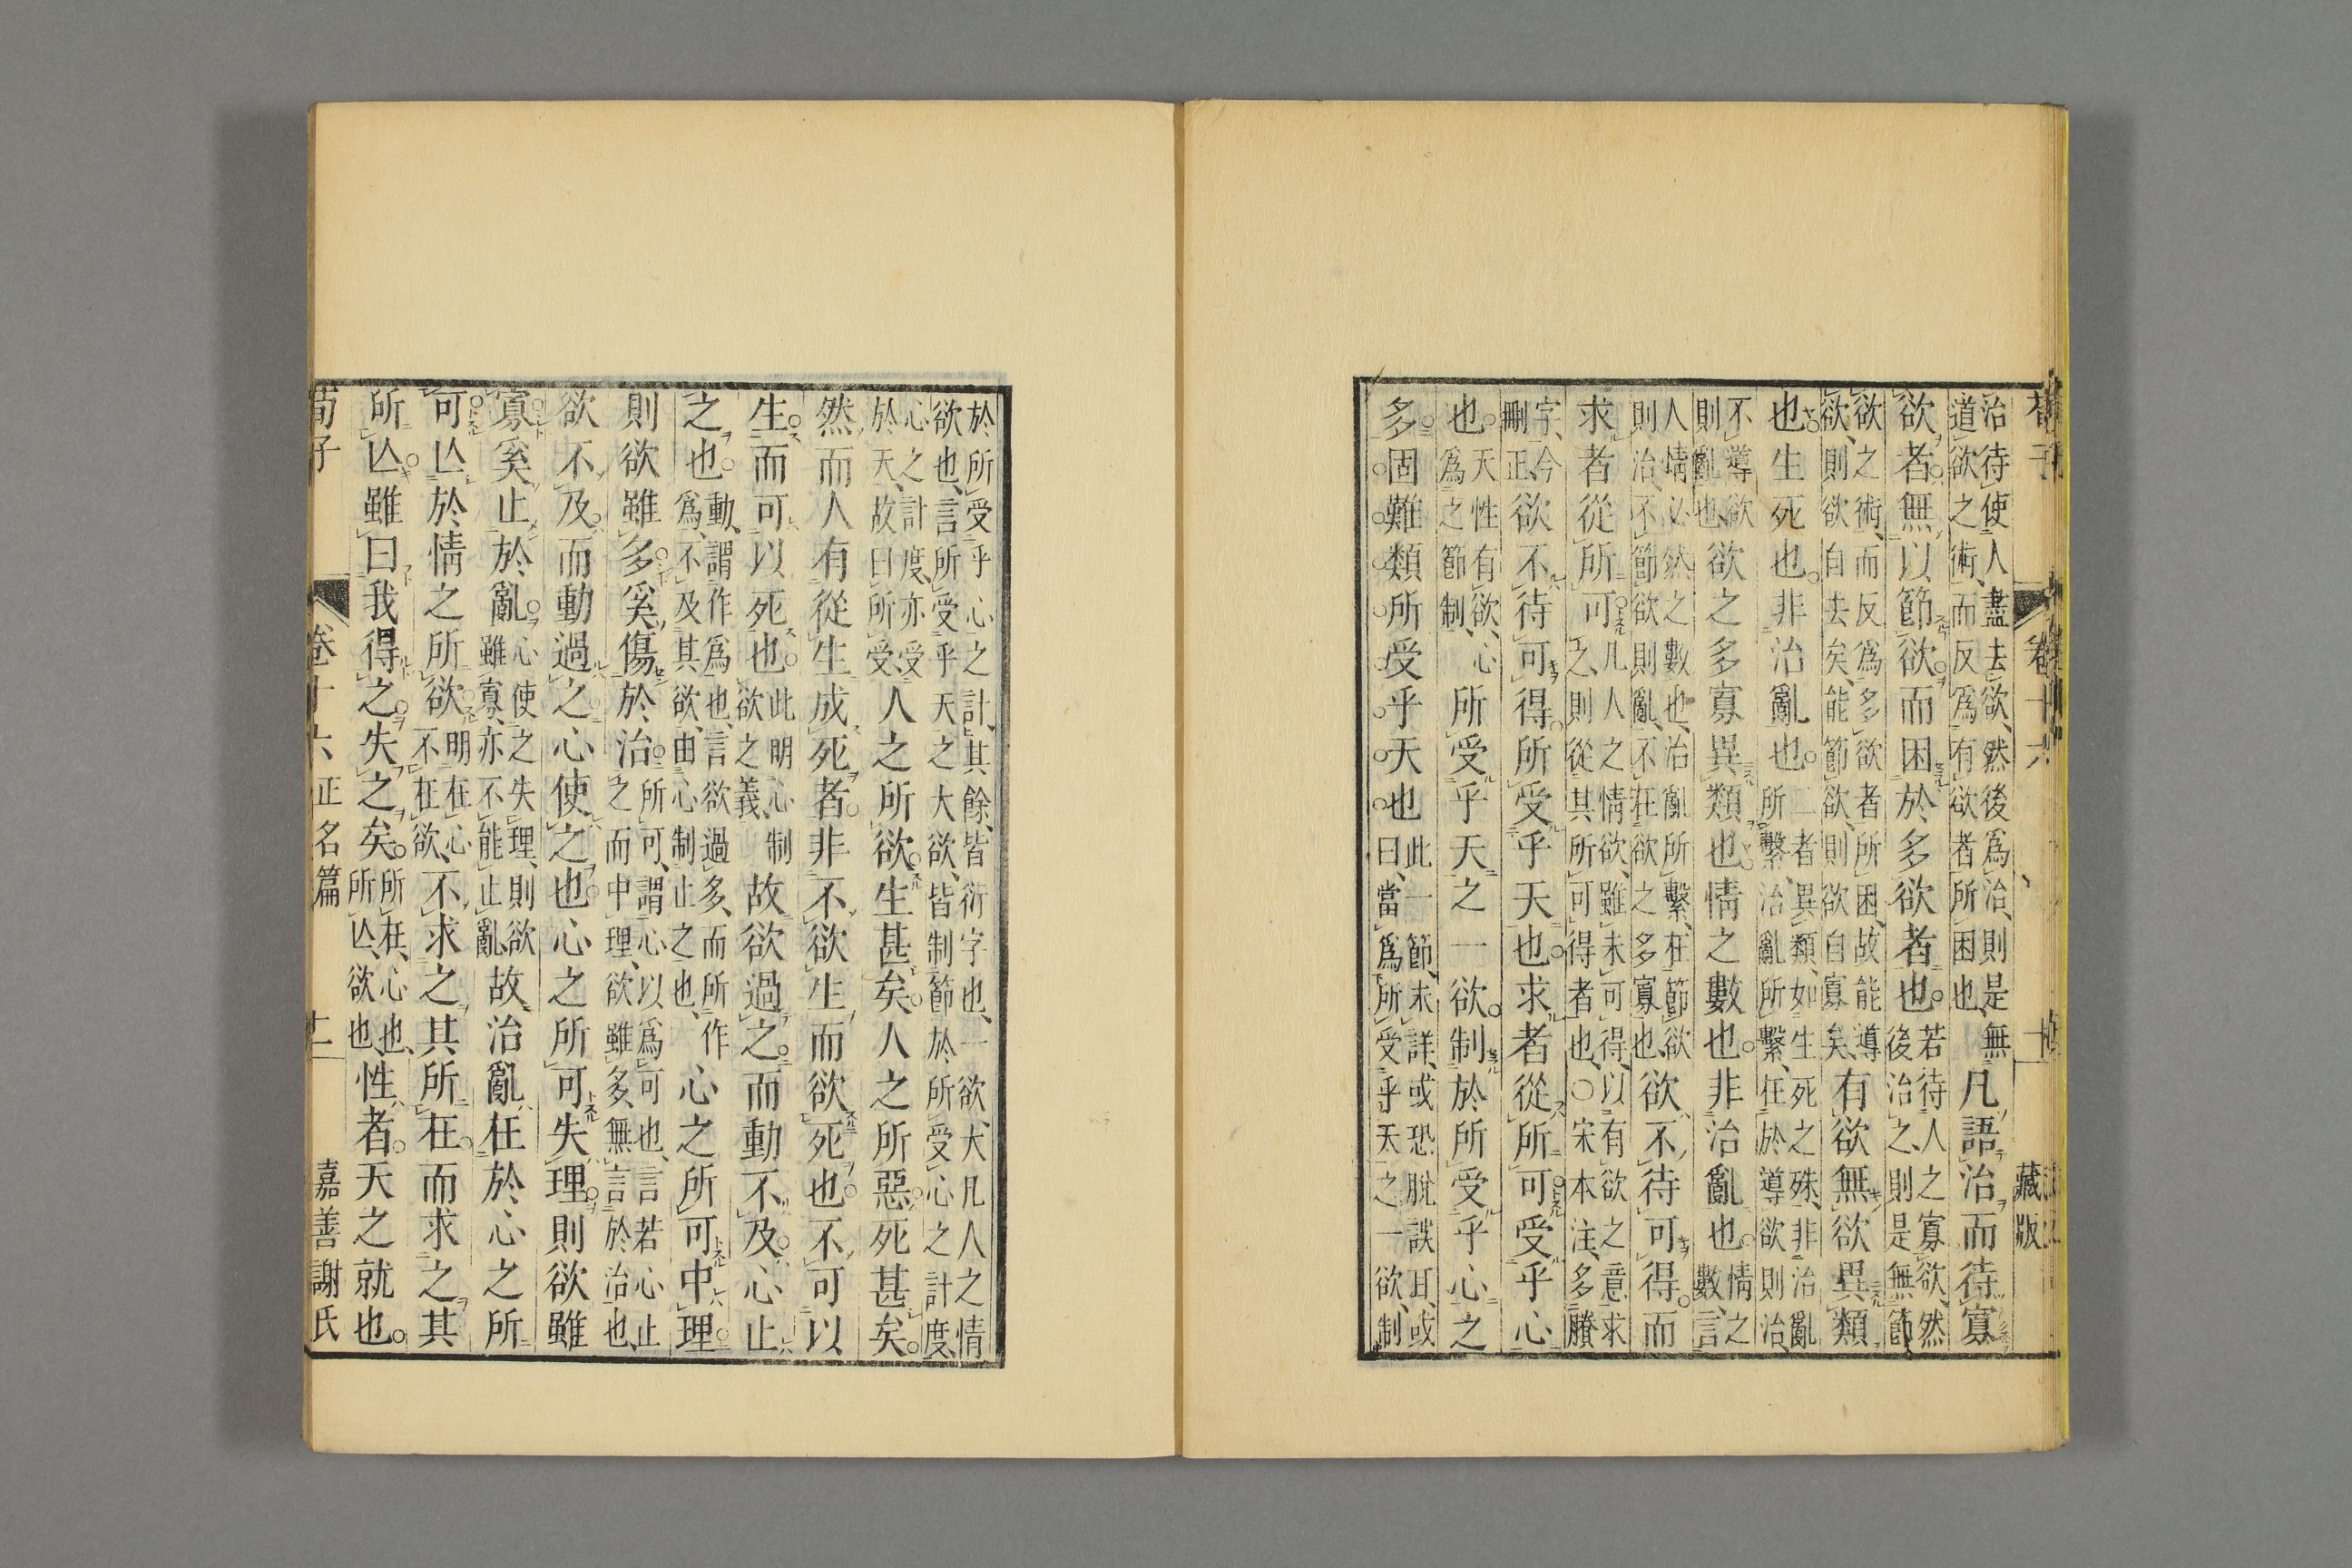 治待使人盡去欲、然後爲治、則是無道欲之術、而反爲有欲者所困也、凡語治而待寡
欲者。無以節欲。而困於多欲者也。若待人之寡欲、然後治之、則是無節
欲之術、而反爲多欲者所困、故能導欲、則欲自去矣、能節欲、則欲自寡矣、有欲無欲異類
也。生死也。非治亂也。二者異類、如生死之殊、非治亂所繫、治亂所繫、在於導欲則治、
不導欲則亂也、欲之多寡異類也。情之數也。非治亂也。情之數、言
人情必然之數也、治亂所繫、在節欲則治、不節欲則亂、不在欲之多寡也、欲不待可得。而
求者從所可凡人之情欲、雖未可得、以有欲之意求之、則從其所可得者也、〇宋本注、多賸
字、今刪正、欲不待可得。所受乎天也。求者從所可。受乎心
也。天性有欲、心爲之節制、所受乎天之一欲。制於所受乎心之
多固難類所受乎天也此一節、未詳、或恐脫誤耳、或曰、當爲所受乎天之一欲、制
於所受乎心之計、其餘、皆衍字也、一欲、大凡人之情欲也、言所受乎天之大欲、皆制節於所受心之計度、
心之計度、亦受於天、故曰所受、人之所欲。生甚矣。人之所惡。死甚矣。
然而人有從生成死者。非不欲生而欲死也。不可以
生。而可以死也。此明心制欲之義、故欲過之。而動不及。心止
之也。動、謂作爲也、言欲過多、而所作爲、不及其欲、由心制止之也、心之所可中理。
則欲雖多。奚傷於治。所可、謂心以爲可也、言若心止之而中理、欲雖多、無言於治也、
欲不及。而動過之。心使之也。心之所可失理。則欲雖
寡。奚止於亂。心使之失理、則欲雖寡、亦不能止亂故治亂在於心之所
可。亾於情之所欲。明在心不在欲、不求之其所在。而求之其
所亾。雖曰我得之。失之矣。所在、心也、所亾、欲也、性者。天之就也。
荀子 卷十六 正名篇 十一 嘉善謝氏